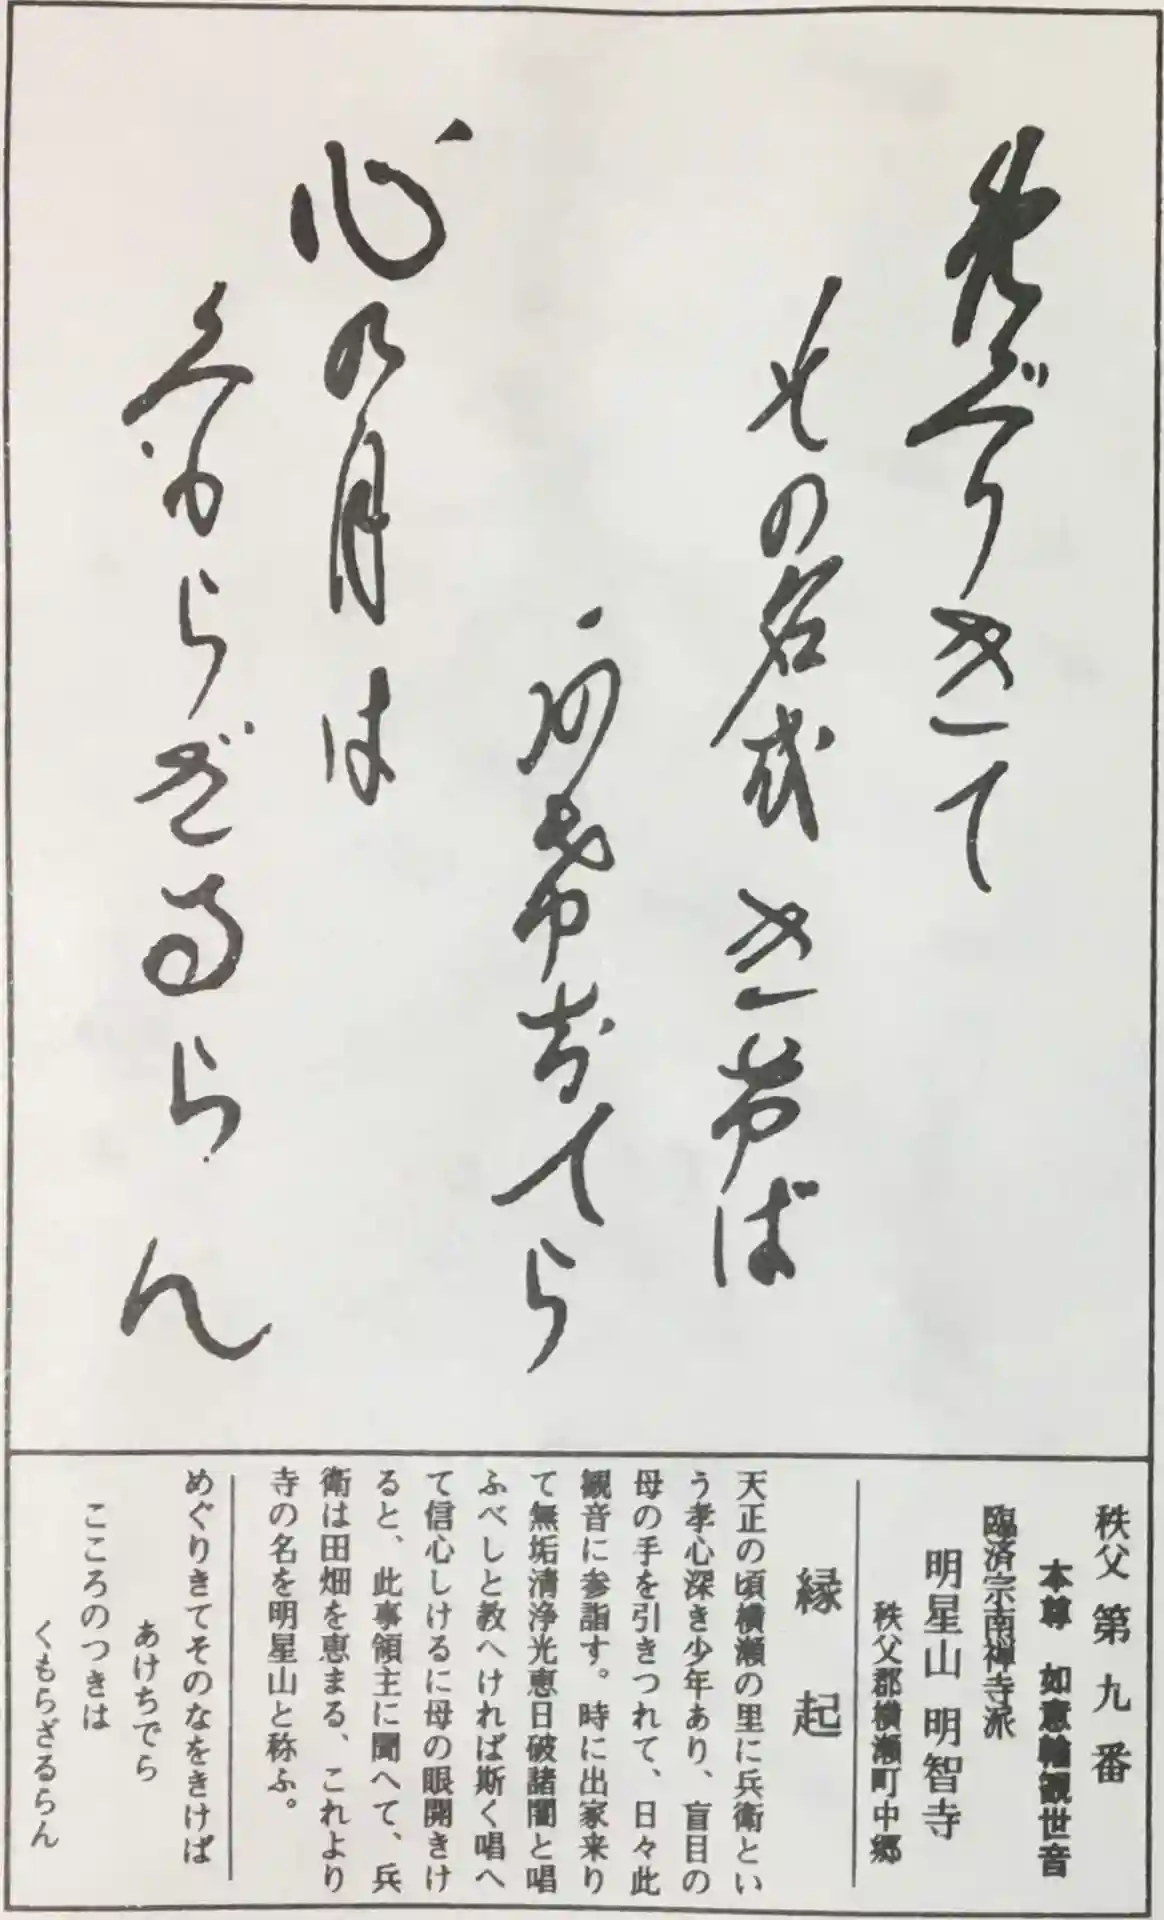 めぐりきて
その名越きけば
阿希ちてら
心の月は
くもらざるらん
秩父 第九番
本尊 如意輪観世音
臨済宗南禅寺派
明星山 明智寺
秩父郡横瀬町中郷
縁起
天正の頃横瀬の里に兵衛とい
う孝心深き少年あり、盲目の
母の手を引きつれて、日々此
観音に参詣す。時に出家来り
て無垢清浄光恵日破諸闇と唱
ふべしと教へければ斯く唱へ
て信心しけるに母の眼開きけ
ると、此事領主に聞へて、兵
衛は田畑を恵まる、これより
寺の名を明星山と称ふ。
めぐりきてそのなをきけば
あけちでら
こころのつきは
くもらざるらん